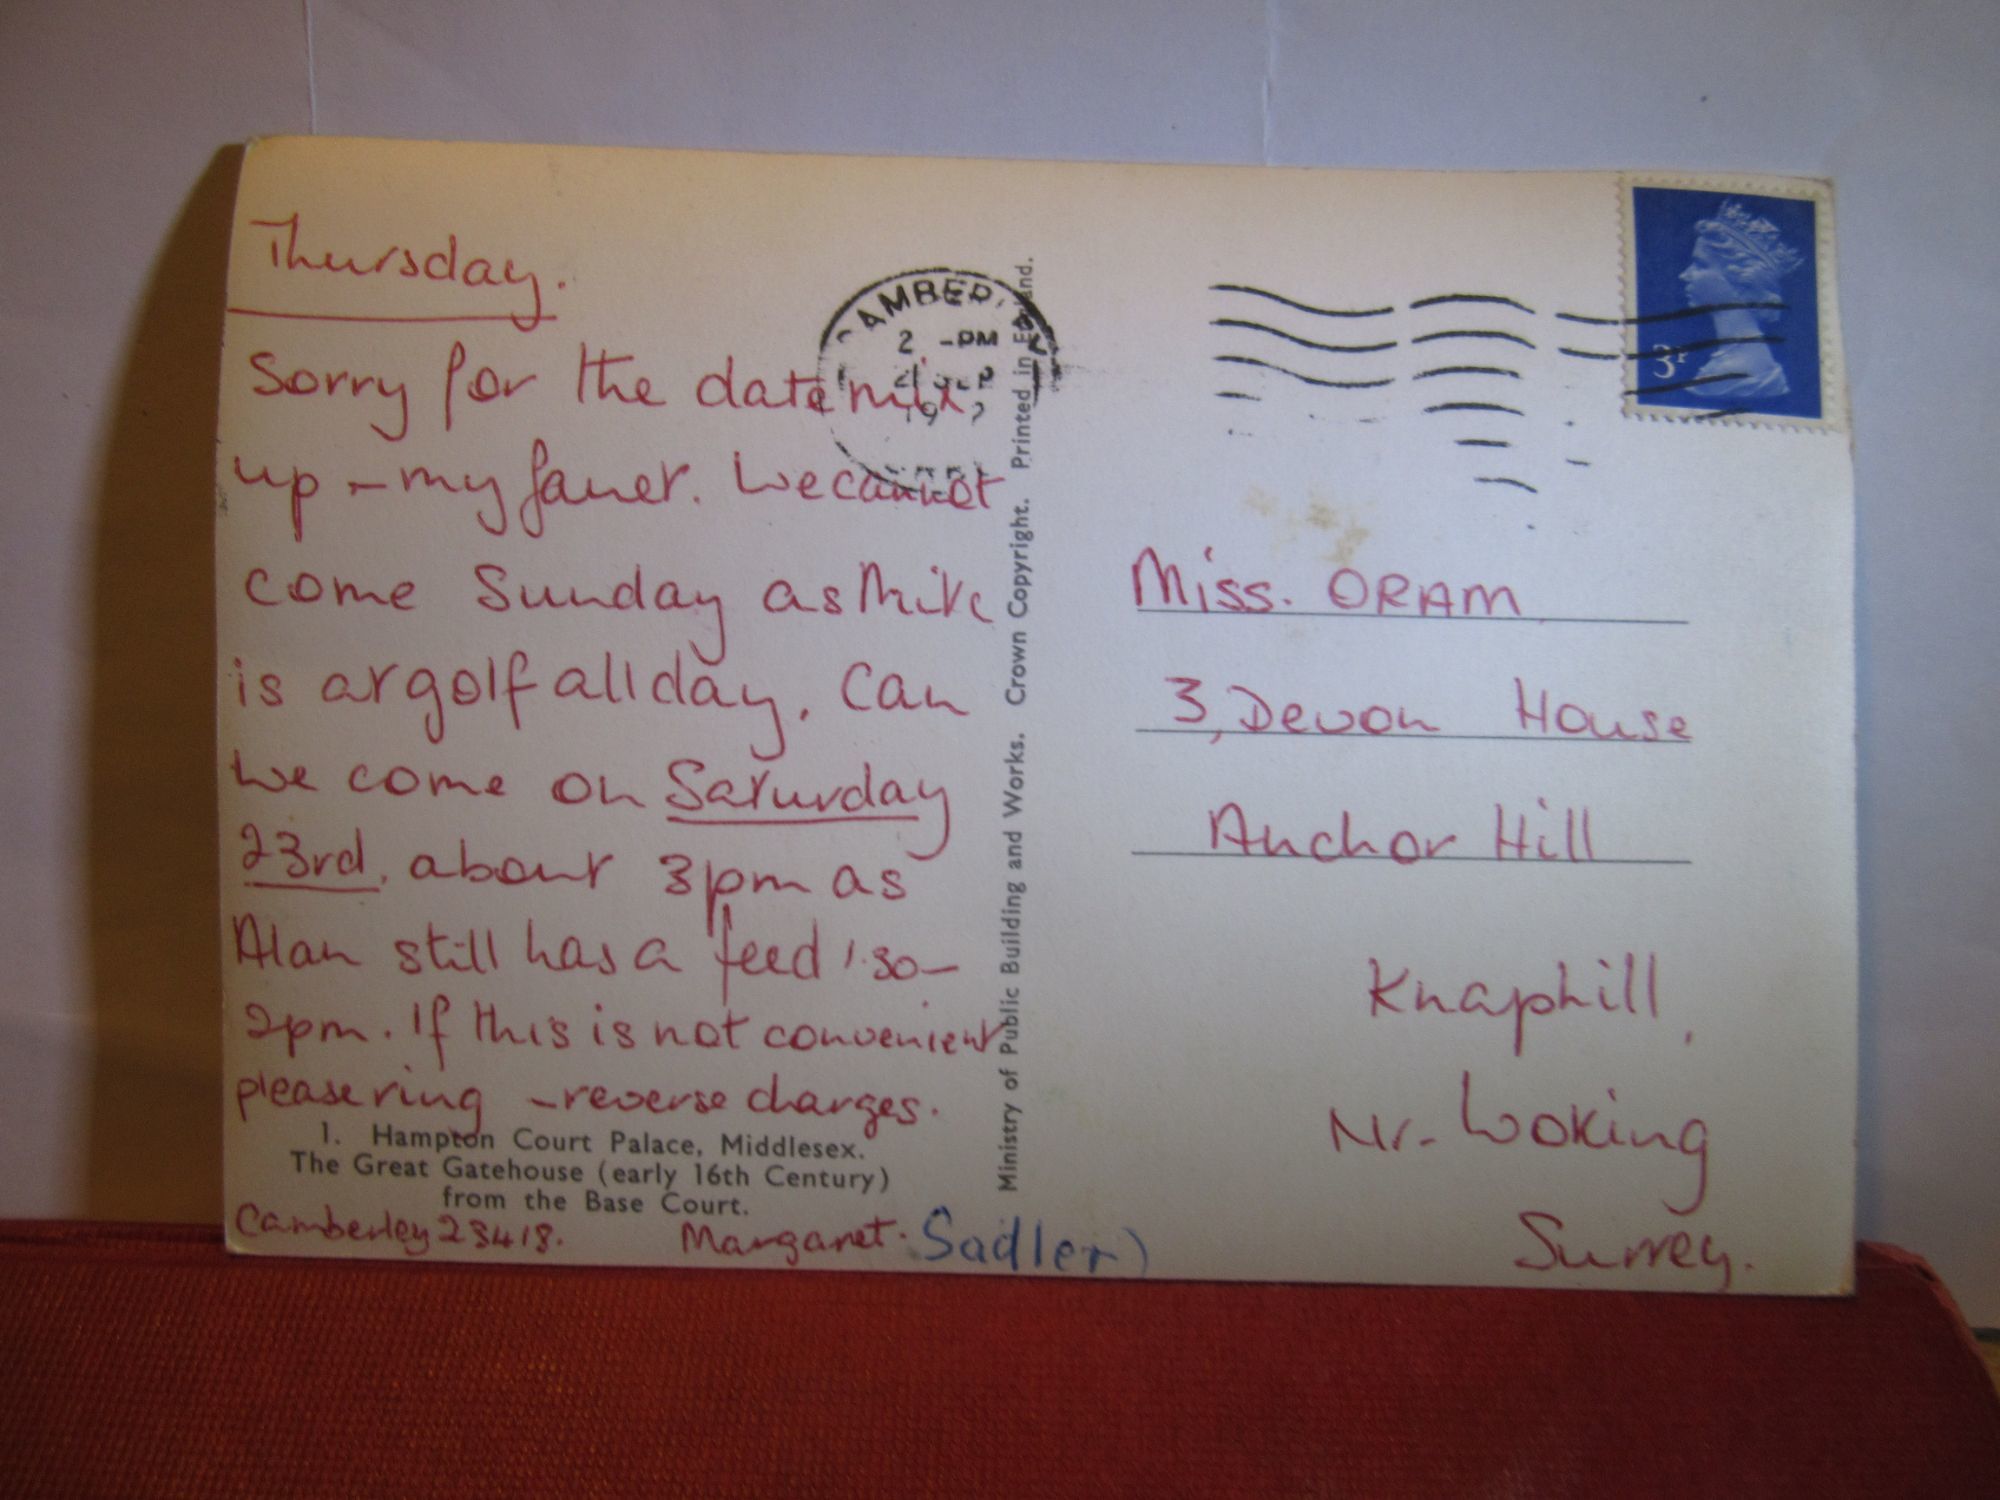 Thursday.
Sorry for the date mix
up - my fault. We cannot
come Sunday as Mike
is at golf all day. Can
we come on Saturday
23rd. about 3pm as
Alan still has a feed 1.30-
2pm. If this is not convenient
please ring - reverse charges.
1. Hampton Court Palace, Middlesex.
The Great Gatehouse (early 16th Century)
from the Base Court.
Camberley 23418.
Margaret. Sadler)
Ministry of Public Building and Works. Crown Copyright. Printed in England.
2 -PM
3P
Miss. ORAM
3, Devon House
Anchor Hill
Knaphill,
Nr. Woking
Surrey.